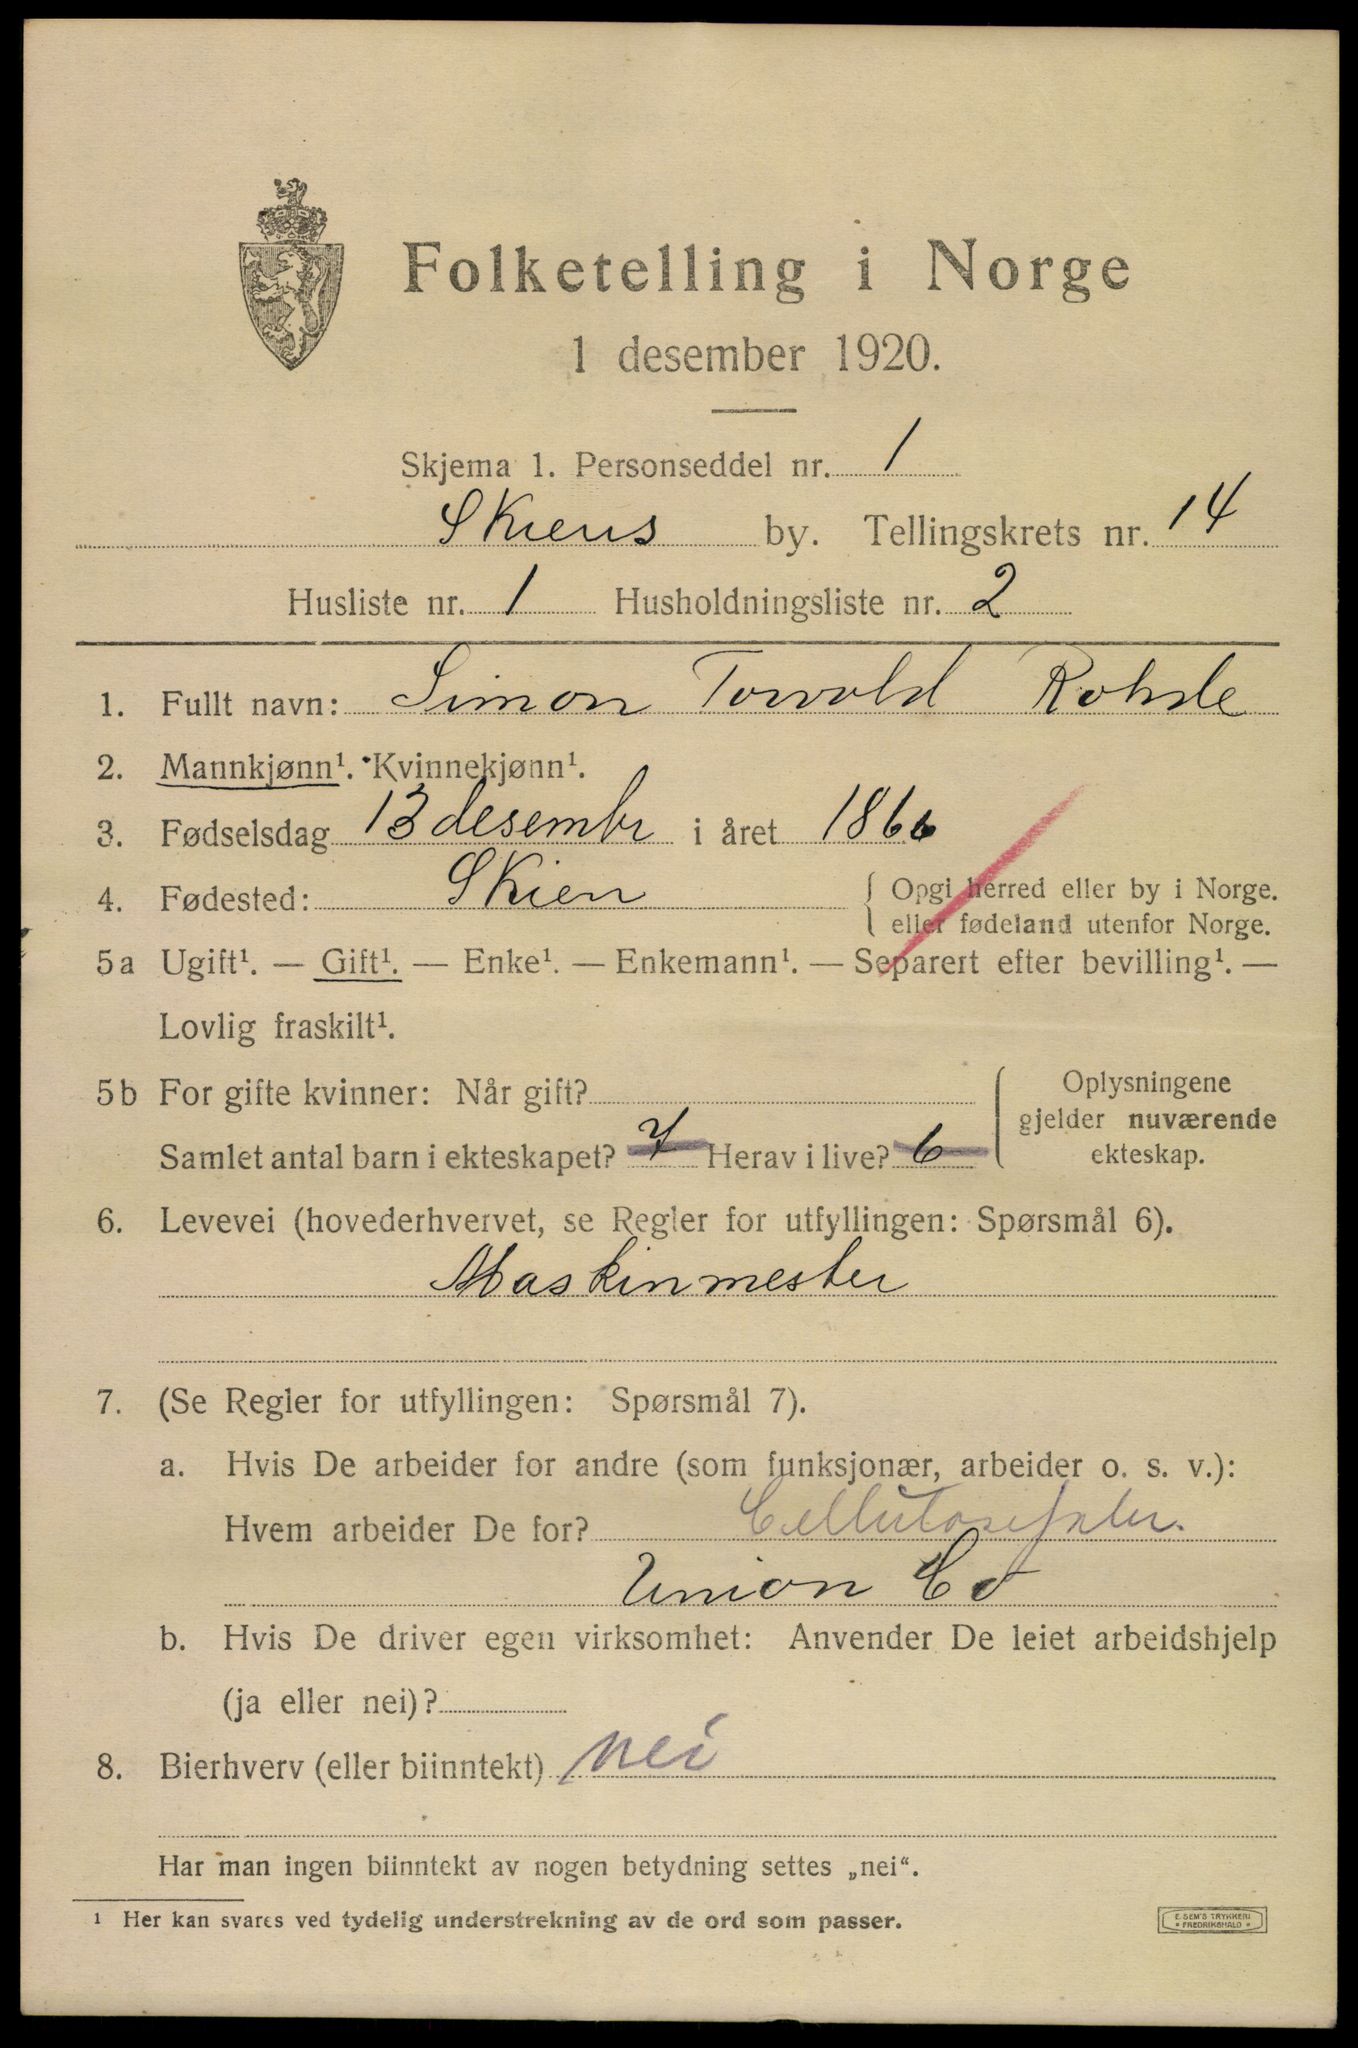 Folketelling i Norge
1 desember 1920.
Skjema 1. Personseddel nr. 1
Skiens by. Tellingskrets nr. 14
Husliste nr. 1 Husholdningsliste nr. 2
1. Fullt navn: Simon Torvald Rohde
2. Mannkjønn¹. Kvinnekjønn¹.
3. Fødselsdag 13 desembr i året 1866
4. Fødested: Skien { Opgi herred eller by i Norge.
eller fødeland utenfor Norge.
5a Ugift¹. — Gift¹. — Enke¹. — Enkemann¹. — Separert efter bevilling¹. —
Lovlig fraskilt¹.
5b For gifte kvinner: Når gift? { Oplysningene
gjelder nuværende
Samlet antal barn i ekteskapet? 7 Herav i live? 6 ekteskap.
6. Levevei (hovederhvervet, se Regler for utfyllingen: Spørsmål 6).
Maskinmester
7. (Se Regler for utfyllingen: Spørsmål 7).
a. Hvis De arbeider for andre (som funksjonær, arbeider o. s. v.):
Hvem arbeider De for?
Union Co
b. Hvis De driver egen virksomhet: Anvender De leiet arbeidshjelp
(ja eller nei)?
8. Bierhverv (eller biinntekt) nei
Har man ingen biinntekt av nogen betydning settes „nei“.
¹ Her kan svares ved tydelig understrekning av de ord som passer.
E. SEM'S TRYKKERI
• FREDRIKSHALD •